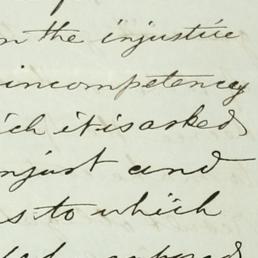 n the injustice
incompetency
ich it is asked
njust and
s to which